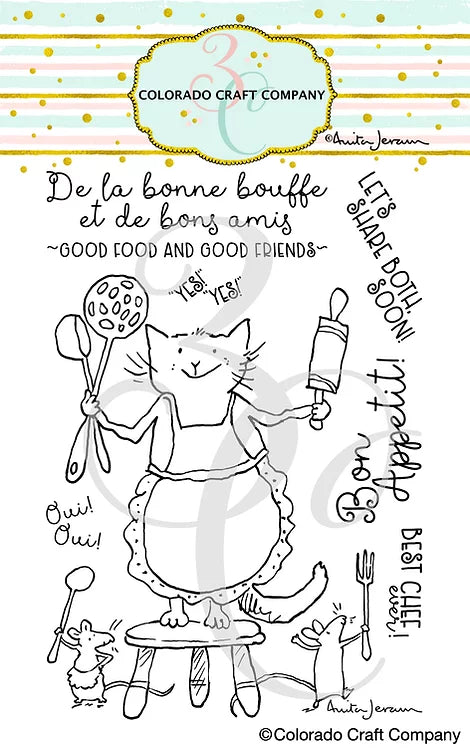 3C
COLORADO CRAFT COMPANY
©Anita Jeram
De la bonne bouffe
et de bons amis
~GOOD FOOD AND GOOD FRIENDS~
"YES!"
"YES!"
LET'S
SHARE BOTH,
SOON!
Bon
Appétit!
Oui!
Oui!
BEST CHEF
ever!
Anita Jeram
©Colorado Craft Company